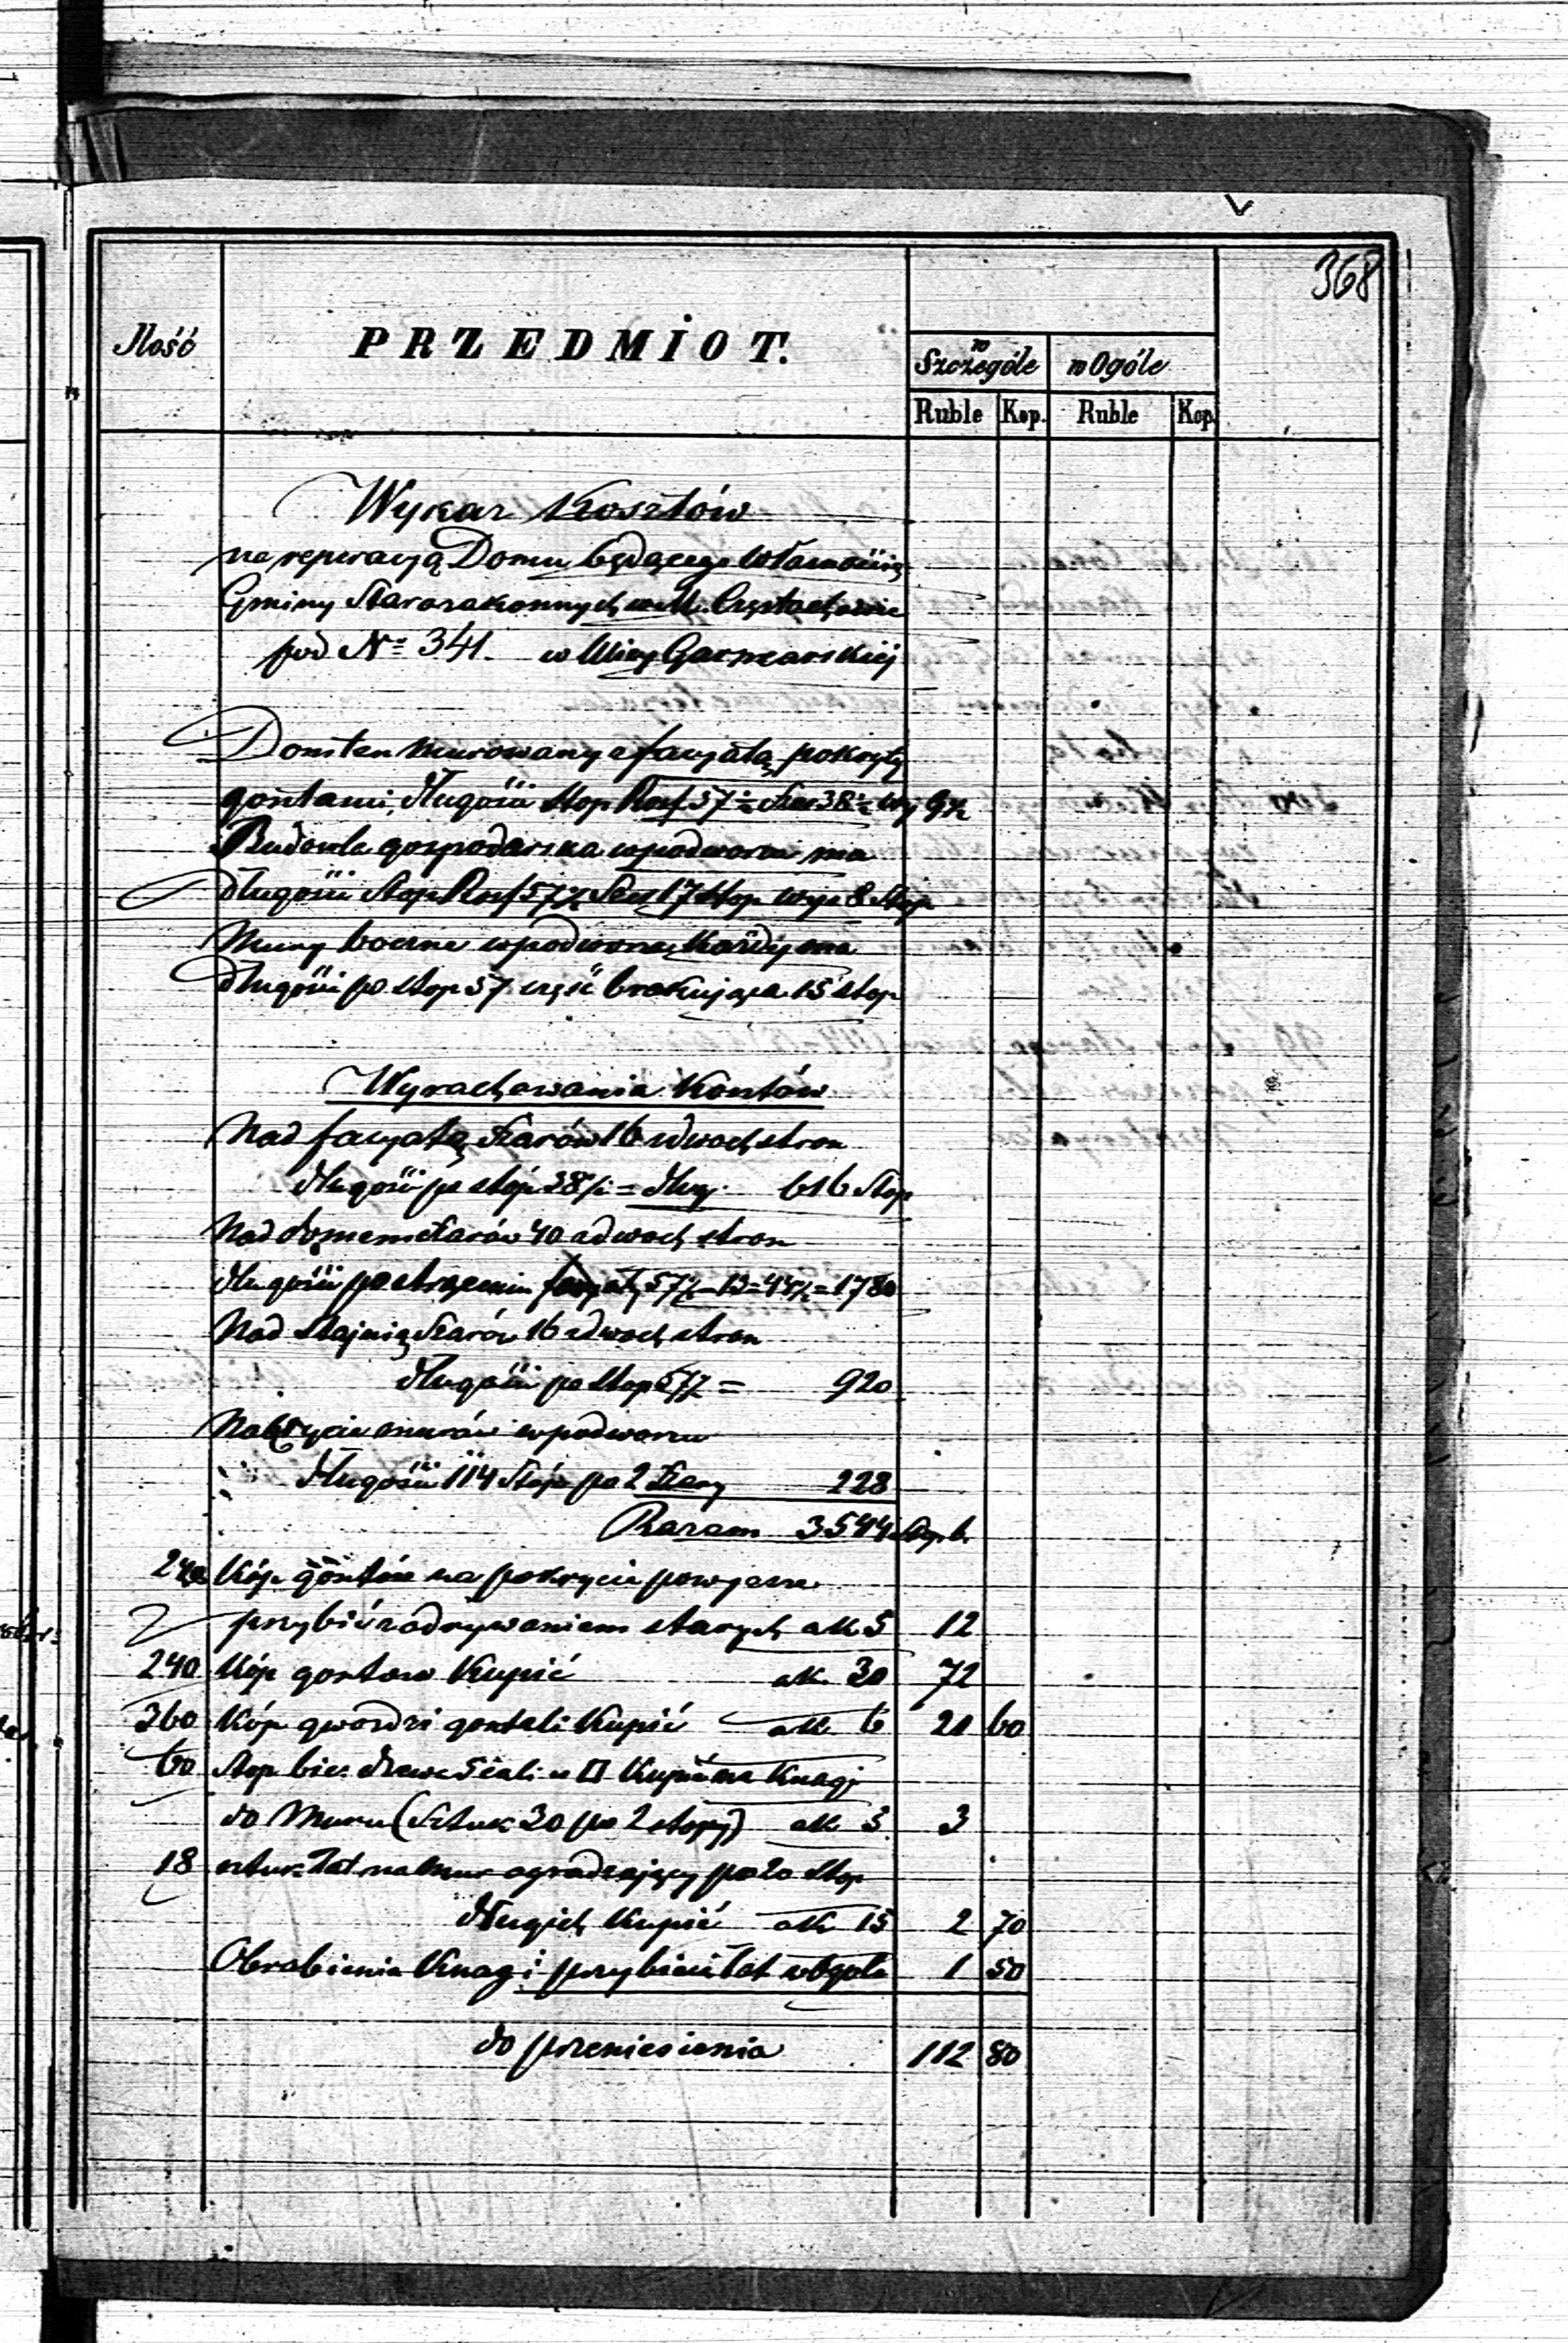 368
Ilość
PRZEDMIOT.
w Szczególe
w Ogóle
Ruble Kop. Ruble Kop.
Wykaz Kosztów
na reperacyą Domu będącego Własnością
Gminy Starozakonnych w M. Częstochowie
pod Nº 341. w Ulicy Garncarskiej
Dom ten murowany z facyatą pokryty
gontami, długości stop Ros. 57½ Szer 38½ Wy 9½
Budowla gospodarska w podworzu ma
długości Stop Ros 57½ Szer 17 stop wys 8 stop
Mury boczne w podworzu każdy ma
długości po stop 57 część brakująca 15 stop
Wyrachowania Kosztów
Nad facyatą Szarów 16 z dwoch stron
długości po stóp 38½ = dług. 616 Stop
Nad domem Szarów 40 z dwoch stron
długości po strąceniu facyaty 57½ - 13 = 44½ = 1780
Nad Stajnią Szarów 16 z dwoch stron
długości po Stop 57½ = 920
Nakrycie murów w podworzu
długości 114 Stóp po 2 Szary 228
Razem 3544 Stop b.
240 Kóp gontów na pokrycie powyższe
przybić z odrywaniem starych a k 5 12
240 Kóp gontow Kupić a k. 30 72
360 Kóp gwozdzi gontali Kupić a k 6 21 60
60 Stop bież. drzewa 5 cali w □ Kupić na Knagi
do Muru (Sztuk 30 po 2 stopy) a k 5 3
18 sztuk Łat na Mur ogradzający po 20 Stop
długich Kupić a k 15 2 70
Obrobienie Knag i przybicie Łat w ogóle 1 50
do przeniesienia 112 80